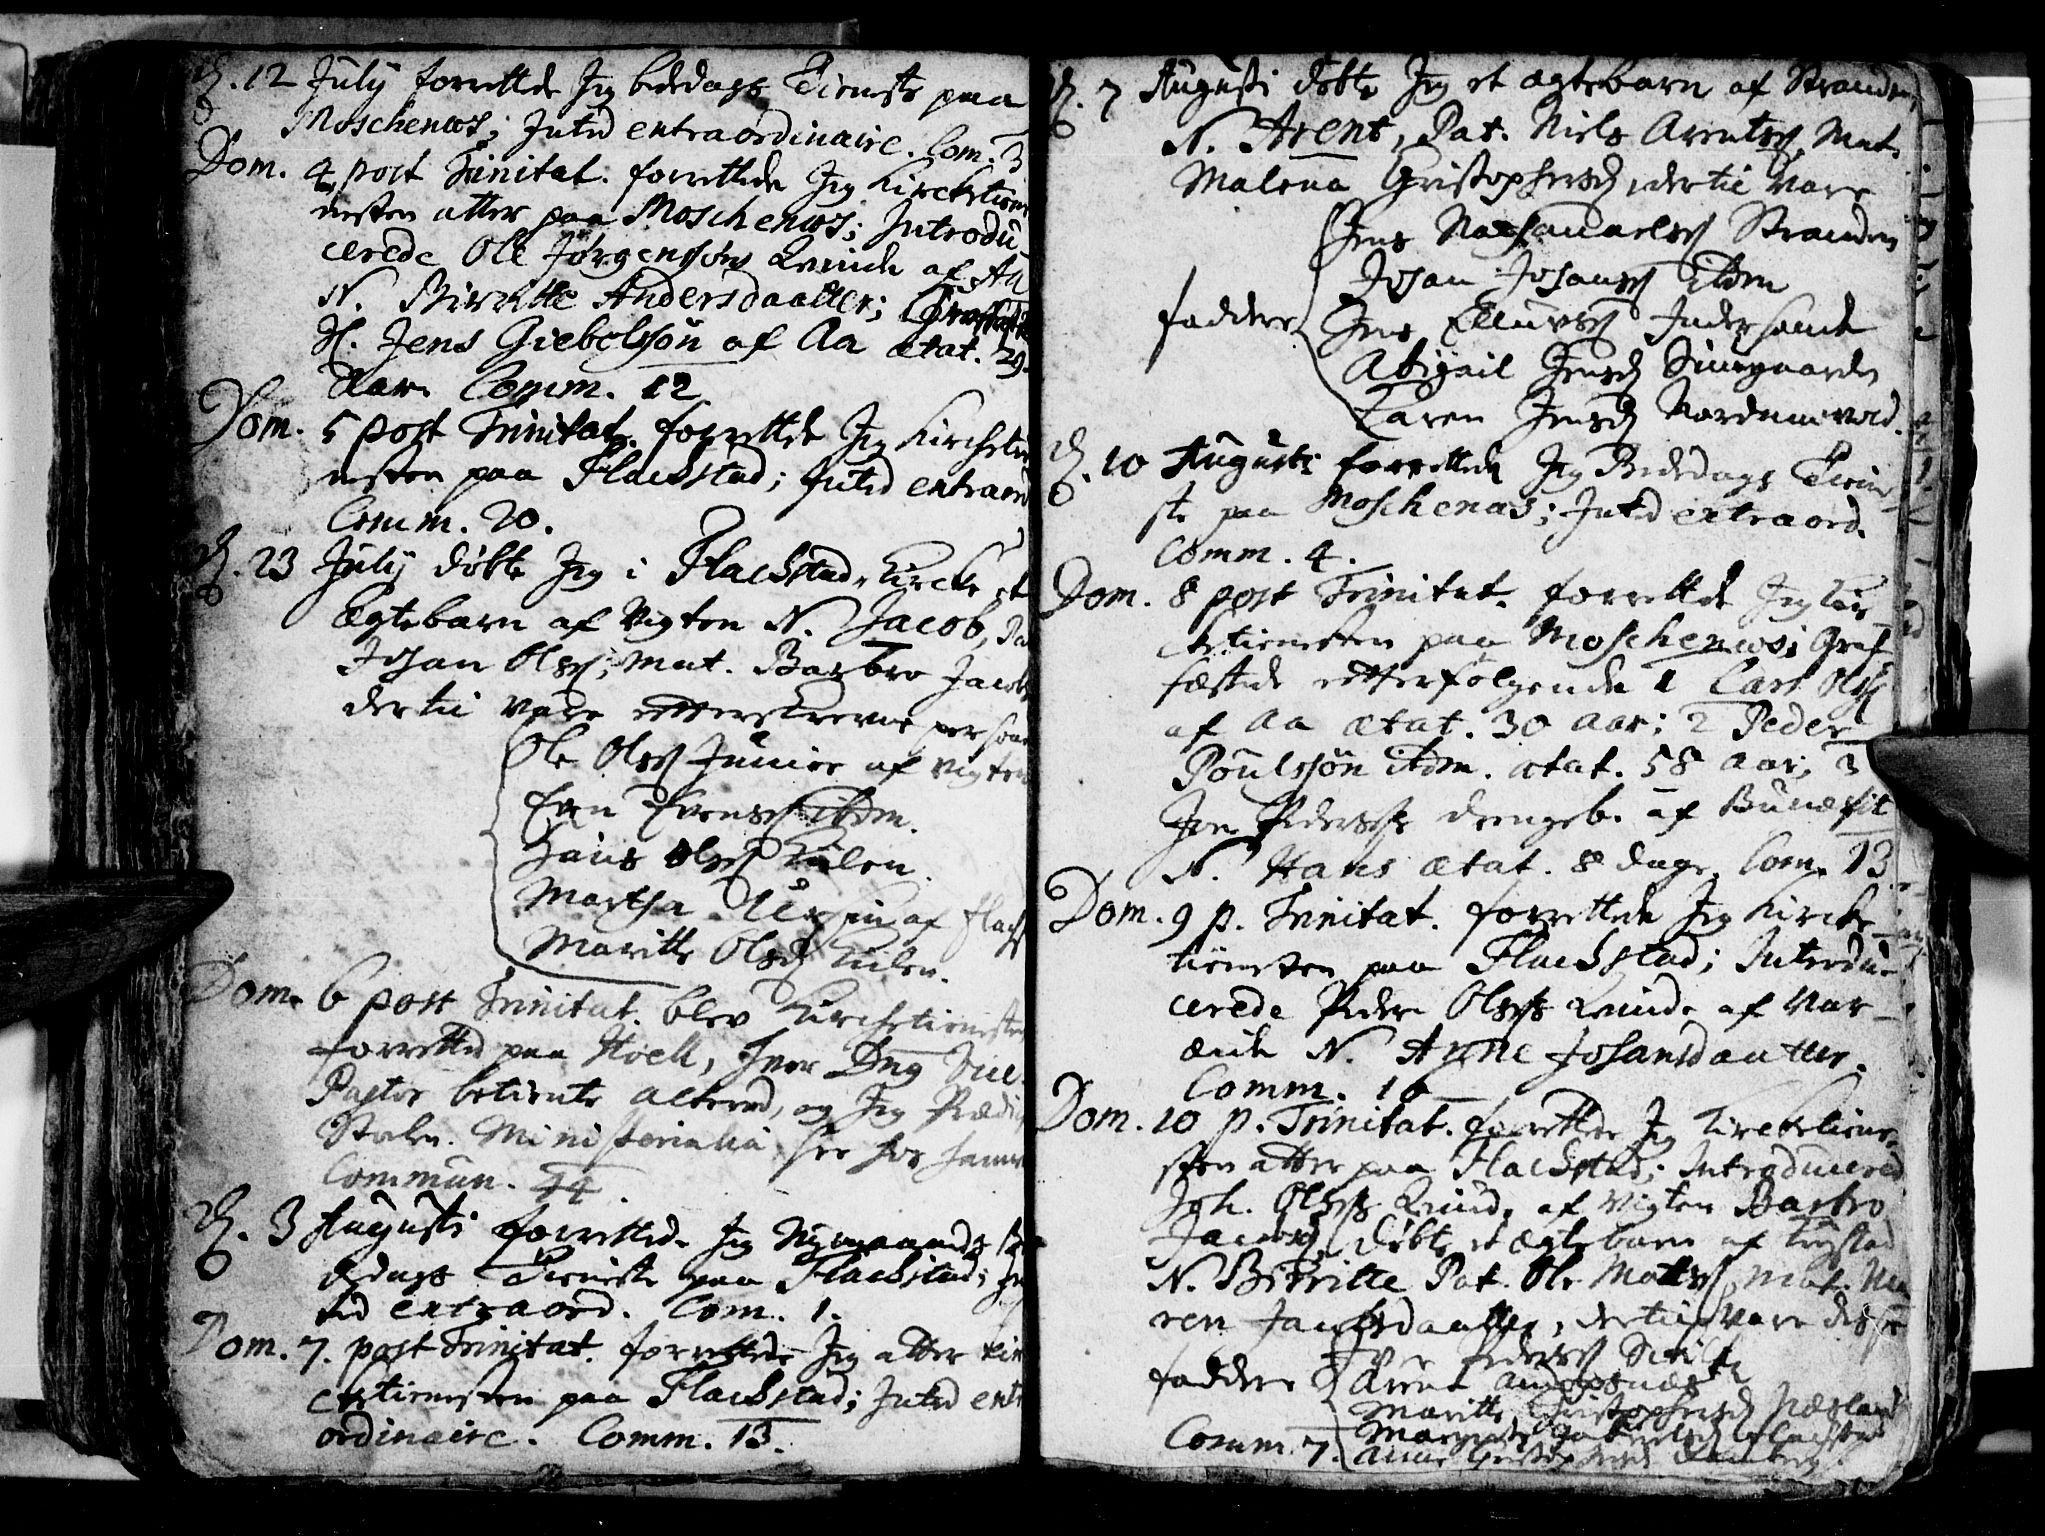 D. 12 July forrettede Jeg bededags Tieniste paa
Moschenæs; Inted extraordinaire. Com. 3
Dom. 4 post Trinitat. forrettede Jeg Kircketie
nesten atter paa Moschenæs; Introdu
cerede Ole Jørgenssøns Qvinde af Aa
N. Birritte Andersdaatter;
Jens Giebelssøn af Aa ætat. 29
Aar. Comm. 12
Dom. 5 post Trinitat. forrettede Jeg Kirchetie
nesten paa Flackstad; Inted extraord
Comm. 20.
D. 23 July døbte Jeg i Flackstad Kircke et
Ægtebarn af Vigten N. Jacob, Pat
Johan Olss; Mat. Barbro Jacobs
dertil vare efterskrevne personer
Ole Olss Junior af Vigten
Even Evenss ibdm.
Hans Olss Kilen.
Martha af Flachst
Maritte Olsd Kilen.
Dom. 6 post Trinitat. blev Kirchetienesten
forrettet paa Hoell, hvor Vice
Pastor betiente Alteret, og Jeg Prædike
Stolen. Ministerialia see hos ham
Commun. 44.
D. 3 Augusti forrettede Jeg
dags Tieniste paa Flackstad; In
ted extraord. Com. 1.
Dom. 7. post Trinitat. forrettede Jeg atter Kir
cketienesten paa Flackstad; Inted extra
ordinaire. Comm. 13.
D. 7 Augusti døbte Jeg et ægtebarn af Stranden
N. Arent, Pat. Niels Arentss, Mat.
Malena Christophersd, dertil vare
Jens Nathanaelss Stranden
Johan Johanss ibdm
faddere Jens Ellevss Indersand
Abigail Jensd
Karen Jensd Nordenvold.
D. 10 Augusti forrettede Jeg Bededags Tieni
ste paa Moschenæs; Inted extraord.
Comm. 4.
Dom. 8 post Trinitat. forrettede Jeg Kir
cketienesten paa Moschenæs; Graf
fæstede efterfølgende 1 Lars Olss
af Aa ætat. 30 Aar; 2 Peder
Poulssøn ibdm. ætat. 58 Aar; 3
Jon Pederss drengeb. af Bunæsfit
N. Hans ætat. 8 dage. Com. 13
Dom. 9 p. Trinitat. forrettede Jeg Kircke
tienesten paa Flackstad; Introdu
cerede Peder Olss Qvinde af Nar
N. Anne Johansdaatter.
Comm. 16
Dom. 10 p. Trinitat. forrettede Jeg Kircketiene
sten atter paa Flackstad; Introducered
Joh. Olss Qvinde af Vigten Barbro
Jacobsd, døbte et ægtebarn af
N. Birritte Pat. Ole Matss, Mat. Ma
ren Jacobsdaatter, dertil vare disse
Iver Pederss
faddere Arent
Maritte Christophersd
Margrete Flackstad
Comm. 7. Anne Christophersd